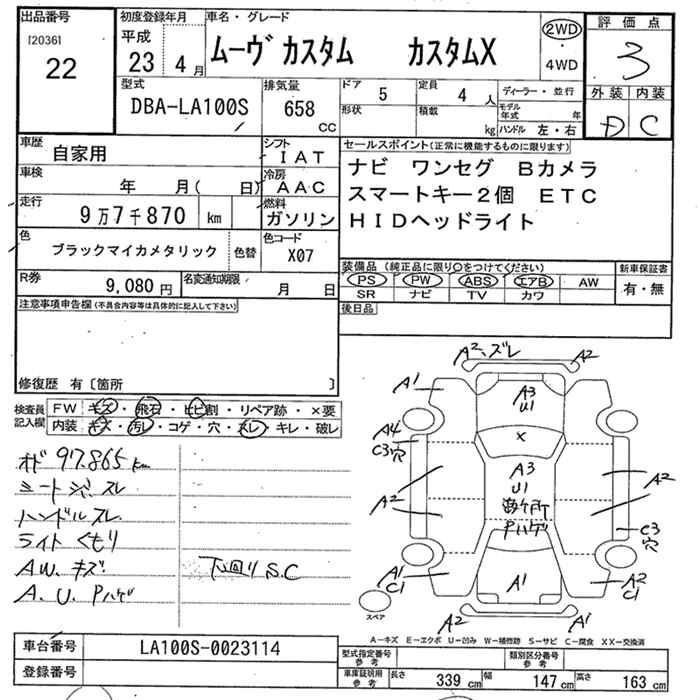 出品番号
[2036]
22
初度登録年月
平成
23年 4月
車名・グレード
ムーヴカスタム カスタムX
2WD
・
4WD
評価点
3
外装 内装
D C
型式
DBA-LA100S
排気量
658
CC
ドア 5
形状
定員 4 人
積載 kg
ディーラー・並行
モデル年式 年
ハンドル 左・右
車歴
自家用
シフト
IAT
車検
年 月( 日)
冷房
AAC
走行
9万7千870 km
燃料
ガソリン
色
ブラックマイカメタリック
色替
色コード
X07
R券
9,080円
名変通知期限
月 日
セールスポイント(正常に機能するものに限ります)
ナビ ワンセグ Bカメラ
スマートキー2個 ETC
HIDヘッドライト
装備品(純正品に限り○をつけてください)
PS PW ABS エアB AW
SR ナビ TV カワ
新車保証書
有・無
後日品
注意事項申告欄(不具合内容等は具体的に記入して下さい)
修復歴 有〔箇所 〕
検査員
記入欄
FW キズ・飛石・ヒビ割・リペア跡・×要
内装 キズ・汚レ・コゲ・穴・スレ・キレ・破レ
オド 97.865 km
シートシミ. スレ
ハンドルスレ.
ライト くもり
A.W. キズ
A. U. Pハゲ
下回り S.C
A2、ズレ
A2
A1
A3
U1
A4
C3穴
×
A3
U1
数ヶ所
Pハゲ
A2
A2
C3
穴
A1
C1
A2
C1
A1
スペア
A2
A1
A－キズ E－エクボ U－凹み W－補修跡 S－サビ C－腐食 XX－交換済
車台番号
LA100S-0023114
登録番号
型式指定番号
参考
類別区分番号
参考
車庫証明用
参考
長さ 339 cm 幅 147 cm 高さ 163 cm